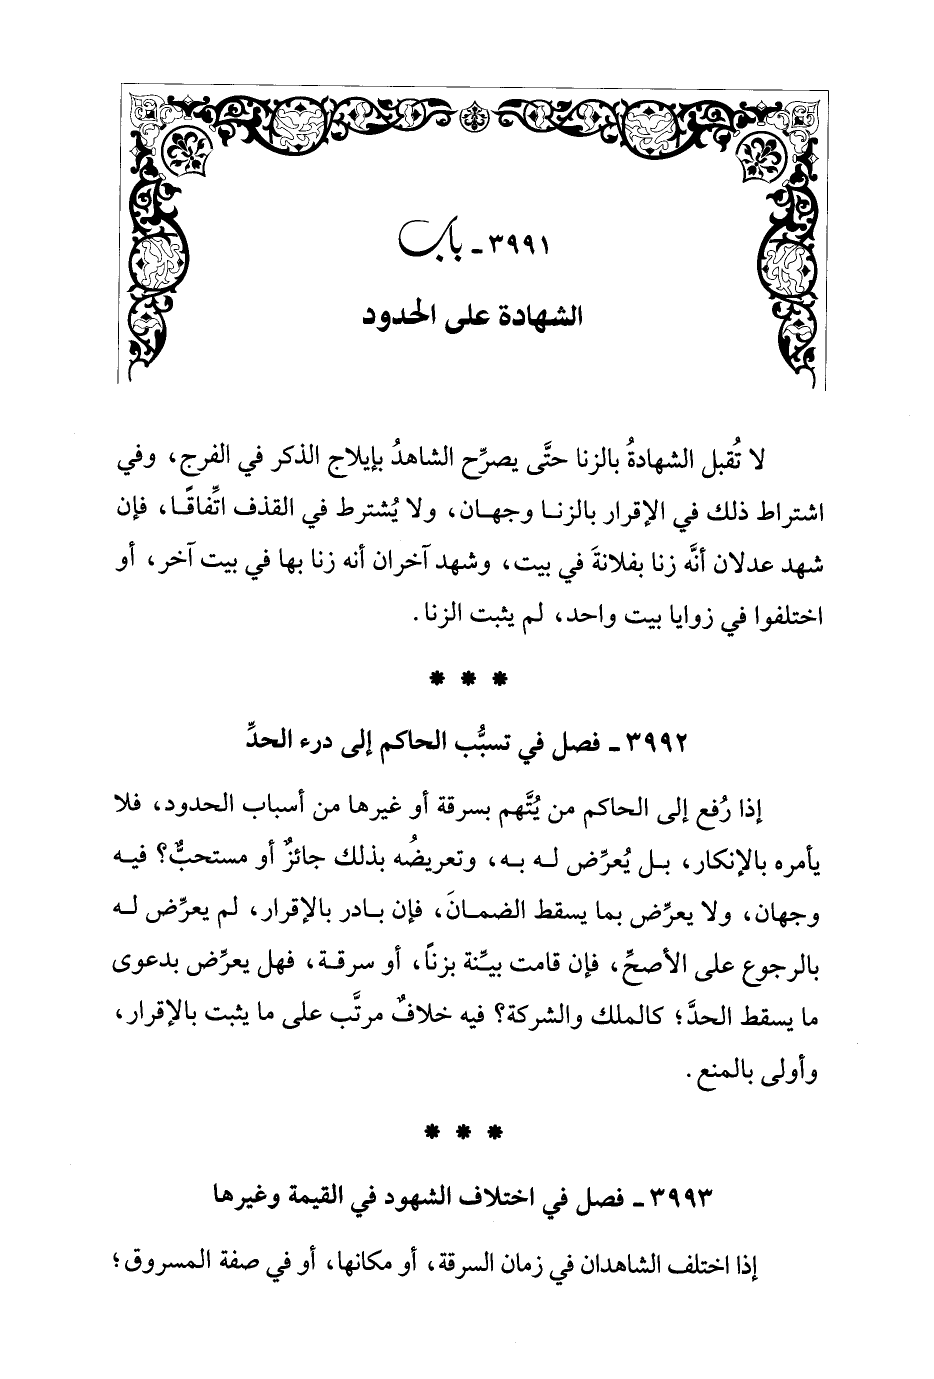 ٣٩٩١ - باب
الشهادة على الحدود
لا تُقبل الشهادةُ بالزنا حتَّى يصرِّح الشاهدُ بإيلاج الذكر في الفرج، وفي
اشتراط ذلك في الإقرار بالزنا وجهان، ولا يُشترط في القذف اتِّفاقًا، فإن
شهد عدلان أنَّه زنا بفلانةَ في بيت، وشهد آخران أنه زنا بها في بيت آخر، أو
اختلفوا في زوايا بيت واحد، لم يثبت الزنا.
* * *
٣٩٩٢ - فصل في تسبُّب الحاكم إلى درء الحدِّ
إذا رُفع إلى الحاكم من يُتَّهم بسرقة أو غيرها من أسباب الحدود، فلا
يأمره بالإنكار، بل يُعرِّض له به، وتعريضُه بذلك جائزٌ أو مستحبٌّ؟ فيه
وجهان، ولا يعرِّض بما يسقط الضمانَ، فإن بادر بالإقرار، لم يعرِّض له
بالرجوع على الأصحِّ، فإن قامت بيِّنة بزناً، أو سرقة، فهل يعرِّض بدعوى
ما يسقط الحدَّ؛ كالملك والشركة؟ فيه خلافٌ مرتَّب على ما يثبت بالإقرار،
وأولى بالمنع.
* * *
٣٩٩٣ - فصل في اختلاف الشهود في القيمة وغيرها
إذا اختلف الشاهدان في زمان السرقة، أو مكانها، أو في صفة المسروق؛